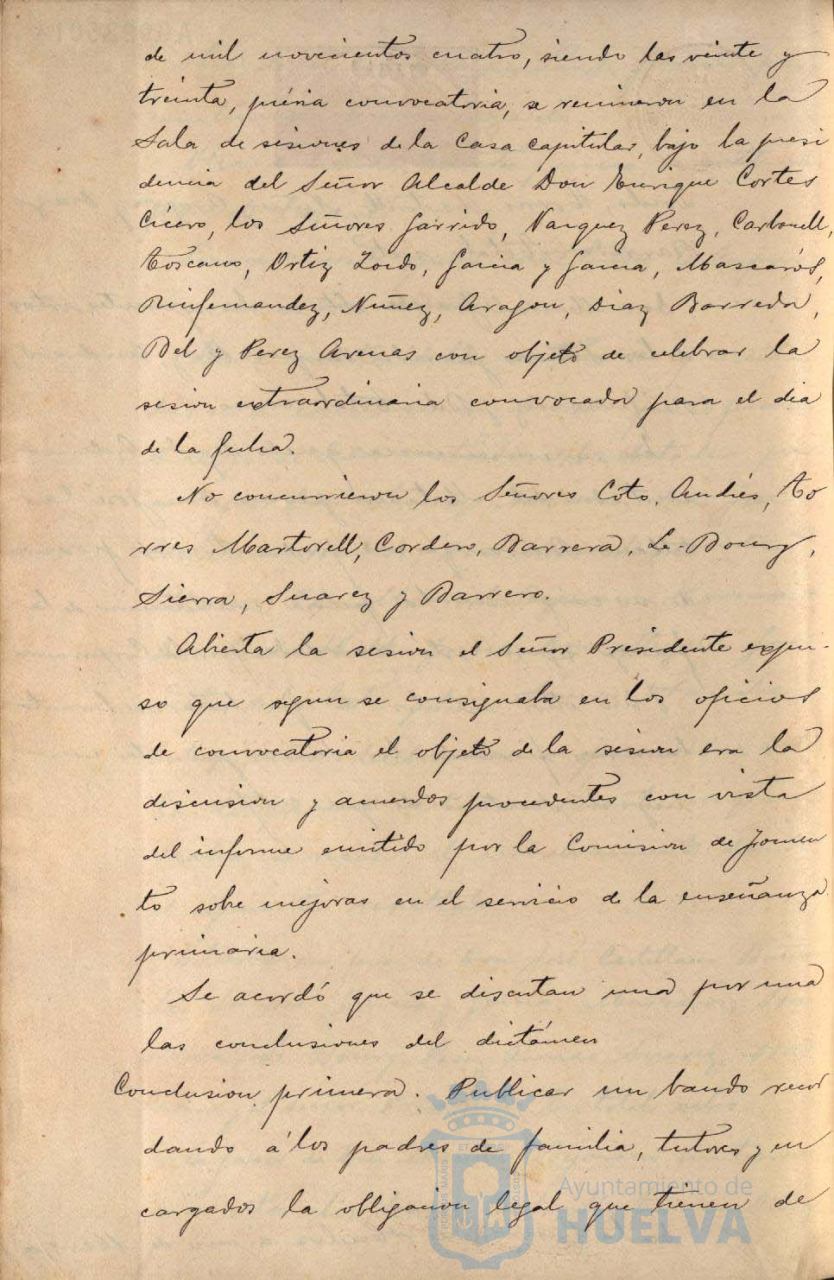 de mil novecientos cuatro, siendo las veinte y
treinta, prévia convocatoria, se reunieron en la
Sala de sesiones de la Casa capitular, bajo la presi
dencia del Señor Alcalde Don Enrique Cortes
Cícero, los Señores Garrido, Vazquez Perez, Carbonell,
Toscano, Ortiz Zordo, Garcia y Garcia, Mascarós,
Quifernandez, Nuñez, Aragon, Diaz Barreda,
Bel y Perez Arenas con objeto de celebrar la
sesion extraordinaria convocada para el dia
de la fecha.
No concurrieron los Señores Coto, Andrés, To
rres Martorell, Cordero, Barrera, Le-Bourg,
Sierra, Suarez y Barrero.
Abierta la sesion el Señor Presidente expu-
so que segun se consignaba en los oficios
de convocatoria el objeto de la sesion era la
discusion y acuerdos procedentes con vista
del informe emitido por la Comision de Fomen
to sobre mejoras en el servicio de la enseñanza
primaria.
Se acordó que se discutan una por una
las conclusiones del dictámen
Conclusion primera. Publicar un bando recor
dando á los padres de familia, tutores y en
cargados la obligacion legal que tienen de
Ayuntamiento de
HUELVA